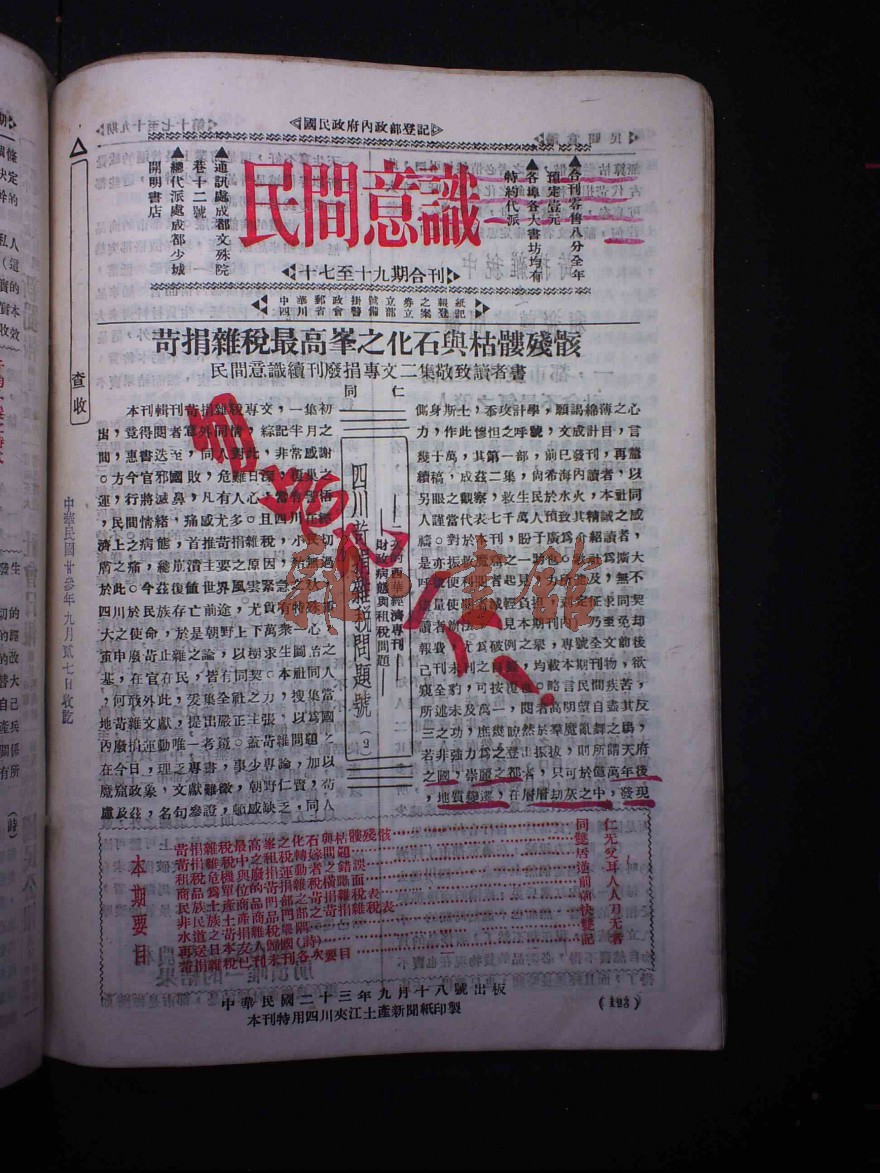 國民政府內政部登記
第十七至十九期
民間意識
▲各刊零售八分全年
預定壹元
▲各埠各大書坊均有
特約代派
民間意識
▲通訊處成都文殊院
巷十二號
▲總代派處成都少城
開明書店
十七至十九期合刊
中華郵政掛號立券之報紙
四川省會警備部立案登記
苛捐雜稅最高峯之化石與枯髏殘骸
民間意識續刊廢捐專文二集敬致讀者書
同仁
本刊輯刊苛捐雜稅專文，一集初
出，竟得閱者意外同情，綜記半月之
間，惠書迭至，同人對此，非常感謝
。方今官邪國敗，危難日深，覆巢之
運，行將滅鼻，凡有人心，當有
，民間情緒，痛感尤多。且四川在經
濟上之病態，首推苛捐雜稅，小民切
膚之痛，總崩潰主要之原因，
於此。今茲復值世界風雲緊急之秋，
四川於民族存亡前途，尤負有特殊重
大之使命，於是朝野上下萬衆一心之
重申廢苛止雜之論，以樹求生圖治之
基，在官在民，皆有同契。本社同人
，何敢外此，爰集全社之力，搜集當
地苛雜文獻，提出嚴正主張，以爲國
內廢捐運動唯一考鏡。蓋苛雜問題，
在今日，理乏專書，事少專論，加以
魔窟政象，文獻難徵，朝野仁賢，苟
慮及茲，名句參證，頓感缺乏，同人
二九的西華經濟專刊
四川苛捐雜稅問題號（2）
財政病態與租稅問題
側身斯士，忝攻計學，願竭綿薄之心
力，作此慘怛之呼號，文成計目，言
幾十萬，其第一部，前已發刊，再釐
續稿，成茲二集，向希海內讀者，以
另眼之觀察，救生民於水火，本社同
人謹當代表七千萬人預致其精誠之感
禱。對於本刊，盼予廣爲介紹讀者，
是亦振救魔窟之一助也。敝社爲廣大
呼號便利閱者起見，力所能及，無不
儘量使讀者減輕負担，
讀者辦法
報費，尤爲破例之舉，專號全文前後
己刊未刊之目錄，均載本期刊物，欲
窺全豹，可按復也。略言民間疾苦，
所述未及萬一，閱者高明望自盡其反
三之功，庶幾瞭然於羣魔亂舞之塲，
若非強力爲之登出振拔，則所謂天府
之國，崇麗之都者，只可於億萬年後
，地質變遷，在層層劫灰之中，發現
本期要目
苛捐雜稅最高峯之化石與枯髏殘骸
苛捐雜稅中之租稅轉嫁問題
租稅危機與廢捐運動者之錯誤
商品爲單位的苛捐雜稅橫踏面
民族土產商品門部之苛捐雜稅表
非民族土產商品門部之苛捐雜稅表
水道之苛捐雜稅舉隅
再送日本友人歸國（詩）
苛捐雜稅已刊未刊各次要目
中華民國二十三年九月十八號出板
本刊特用四川夾江土產新聞紙印製
(123)
查收
中華民國廿叁年九月貳七日收訖
勿忘九一八！